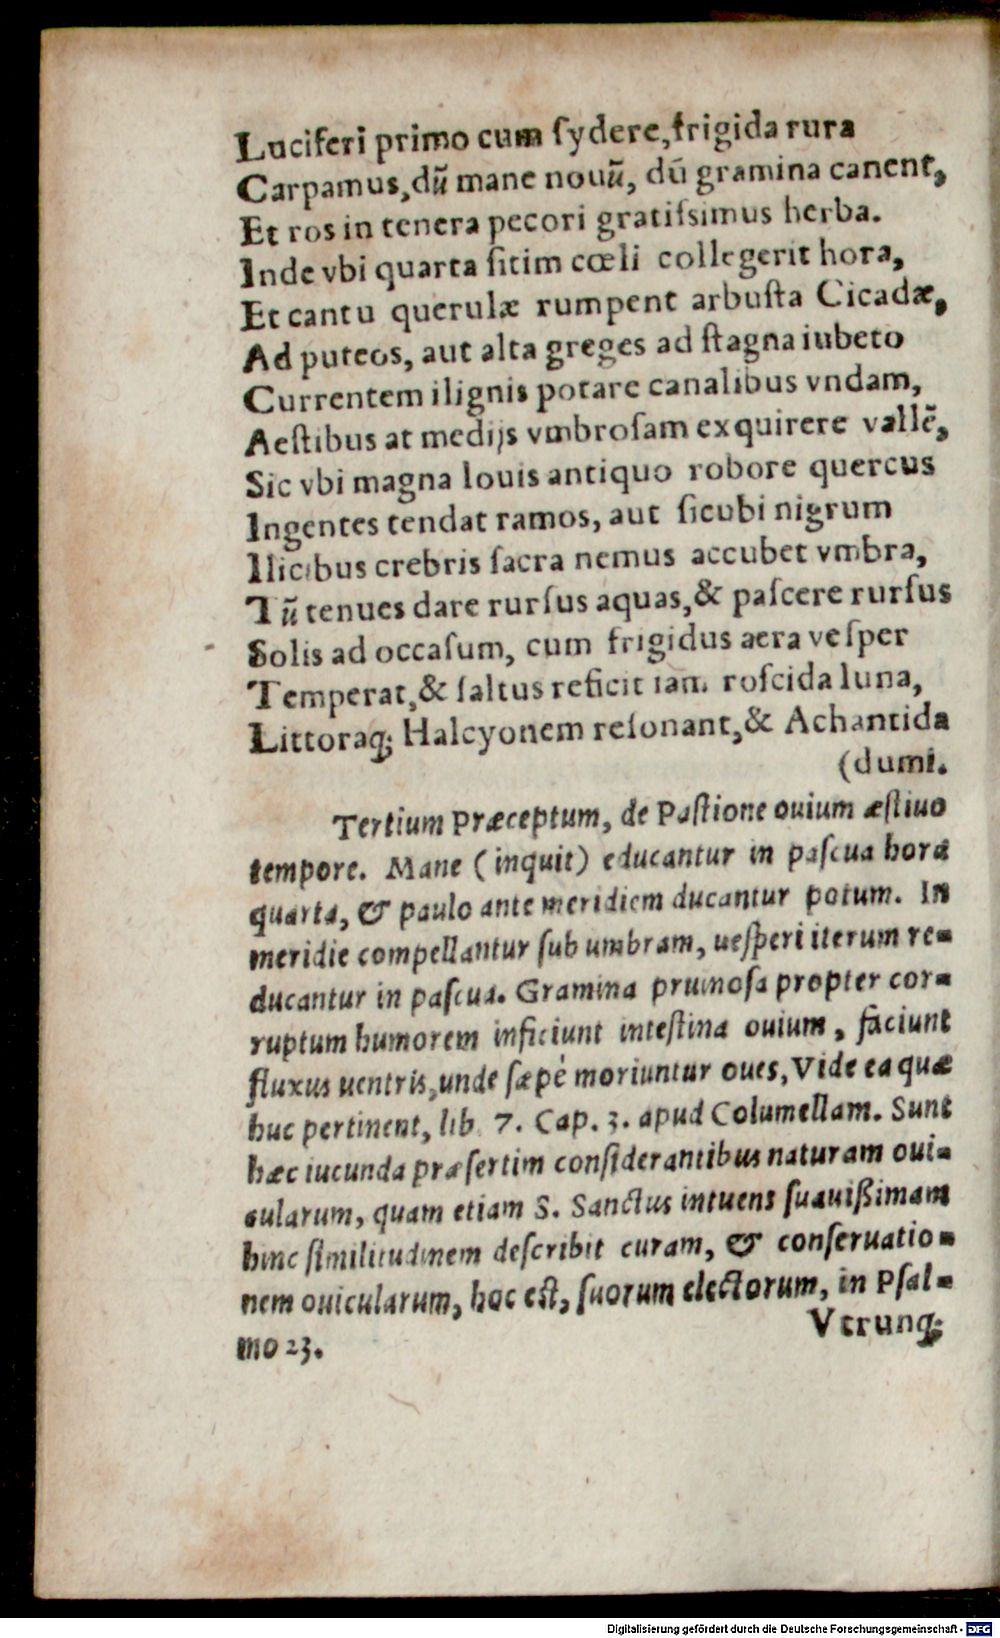 Luciferi primo cum ſydere, frigida rura
Carpamus, dū mane nouū, dū gramina canent,
Et ros in tenera pecori gratiſsimus herba.
Inde vbi quarta ſitim cœli collegerit hora,
Et cantu querulæ rumpent arbuſta Cicadæ,
Ad puteos, aut alta greges ad ſtagna iubeto
Currentem ilignis potare canalibus vndam,
Aeſtibus at medijs vmbroſam exquirere vallē,
Sic vbi magna Iouis antiquo robore quercus
Ingentes tendat ramos, aut ſicubi nigrum
Ilicibus crebris ſacra nemus accubet vmbra,
Tū tenues dare rurſus aquas, & paſcere rurſus
Solis ad occaſum, cum frigidus aera veſper
Temperat, & ſaltus reficit iam roſcida luna,
Littoraq; Halcyonem reſonant, & Achantida
(dumi.
Tertium Præceptum, de Paſtione ouium æſtiuo
tempore. Mane (inquit) educantur in paſcua hora
quarta, & paulo ante meridiem ducantur potum. In
meridie compellantur ſub umbram, ueſperi iterum re-
ducantur in paſcua. Gramina pruinoſa propter cor-
ruptum humorem inficiunt inteſtina ouium, faciunt
fluxus uentris, unde ſæpè moriuntur oues, Vide ea quæ
huc pertinent, lib. 7. Cap. 3. apud Columellam. Sunt
hæc iucunda præſertim conſiderantibus naturam oui-
cularum, quam etiam S. Sanctus intuens ſuauißimam
hinc ſimilitudinem deſcribit curam, & conſeruatio-
nem ouicularum, hoc eſt, ſuorum electorum, in Pſal-
mo 23.
Vtrunq;
Digitalisierung gefördert durch die Deutsche Forschungsgemeinschaft - DFG